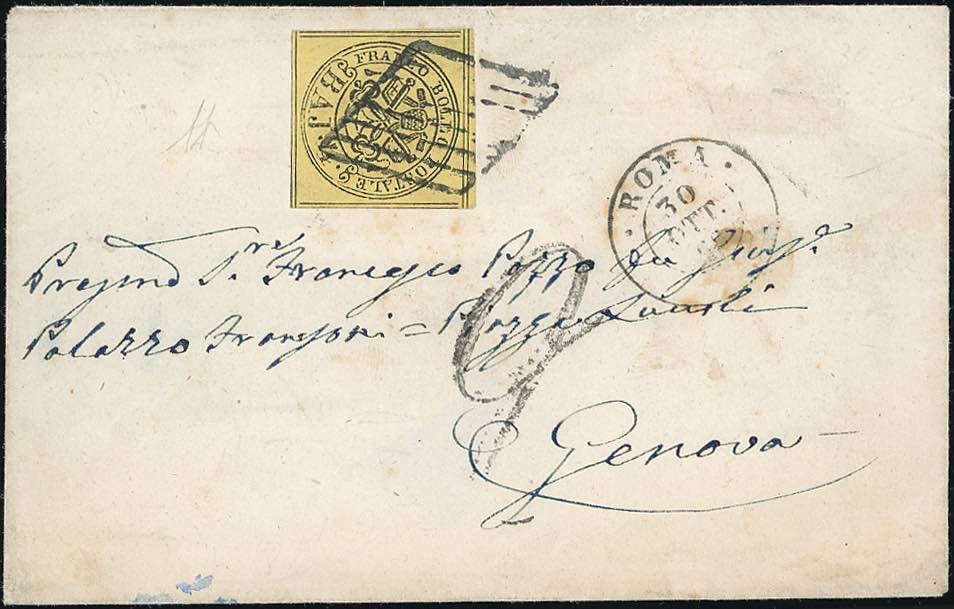 FRANCO BOLLO POSTALE
BAJ
· ROMA ·
30
OTT.
Pregmo Sr. Francesco Pozzo fu Giuse.
Palazzo Fransoni = Piazza
Genova